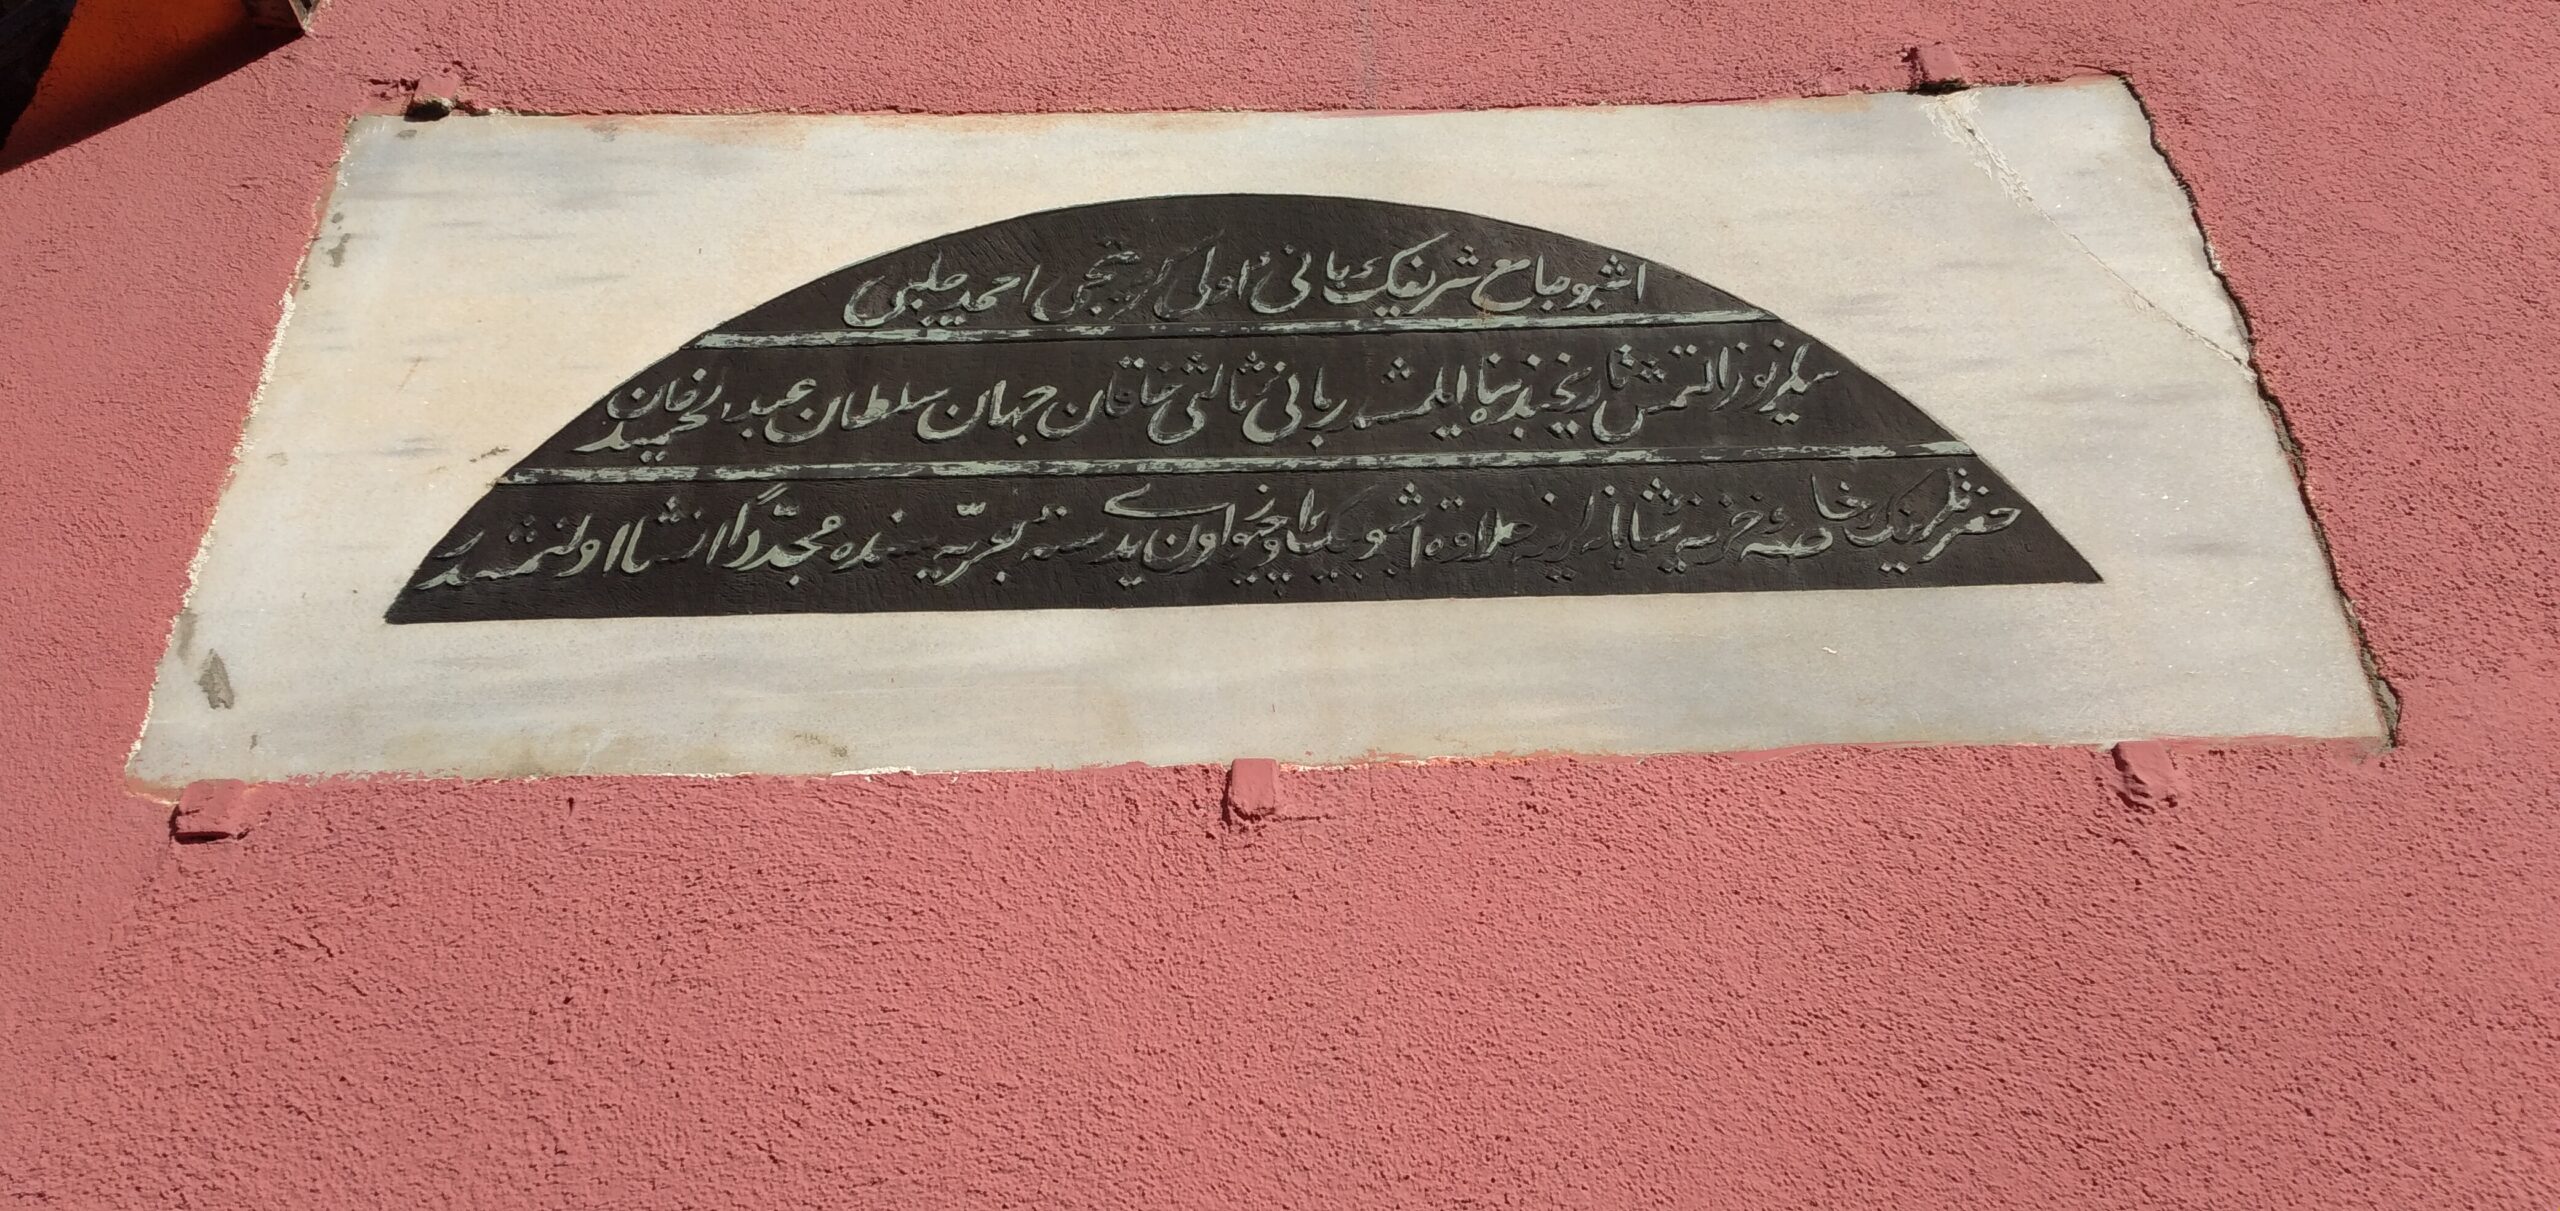 اشبو جامع شريفك بانئ اولى احمد چلبى
سكز يوز التمش تاريخنده بنا ايلمش بانئ ثالثى خاقان جهان سلطان عبد الحميد خان
حضرتلرينك خاصه خزينۀ شاهانه لرينه علاوةً اشبو بيك اوچيوز اون يدى سنۀ هجريه سنده مجدّدًا انشا اولنمشدر